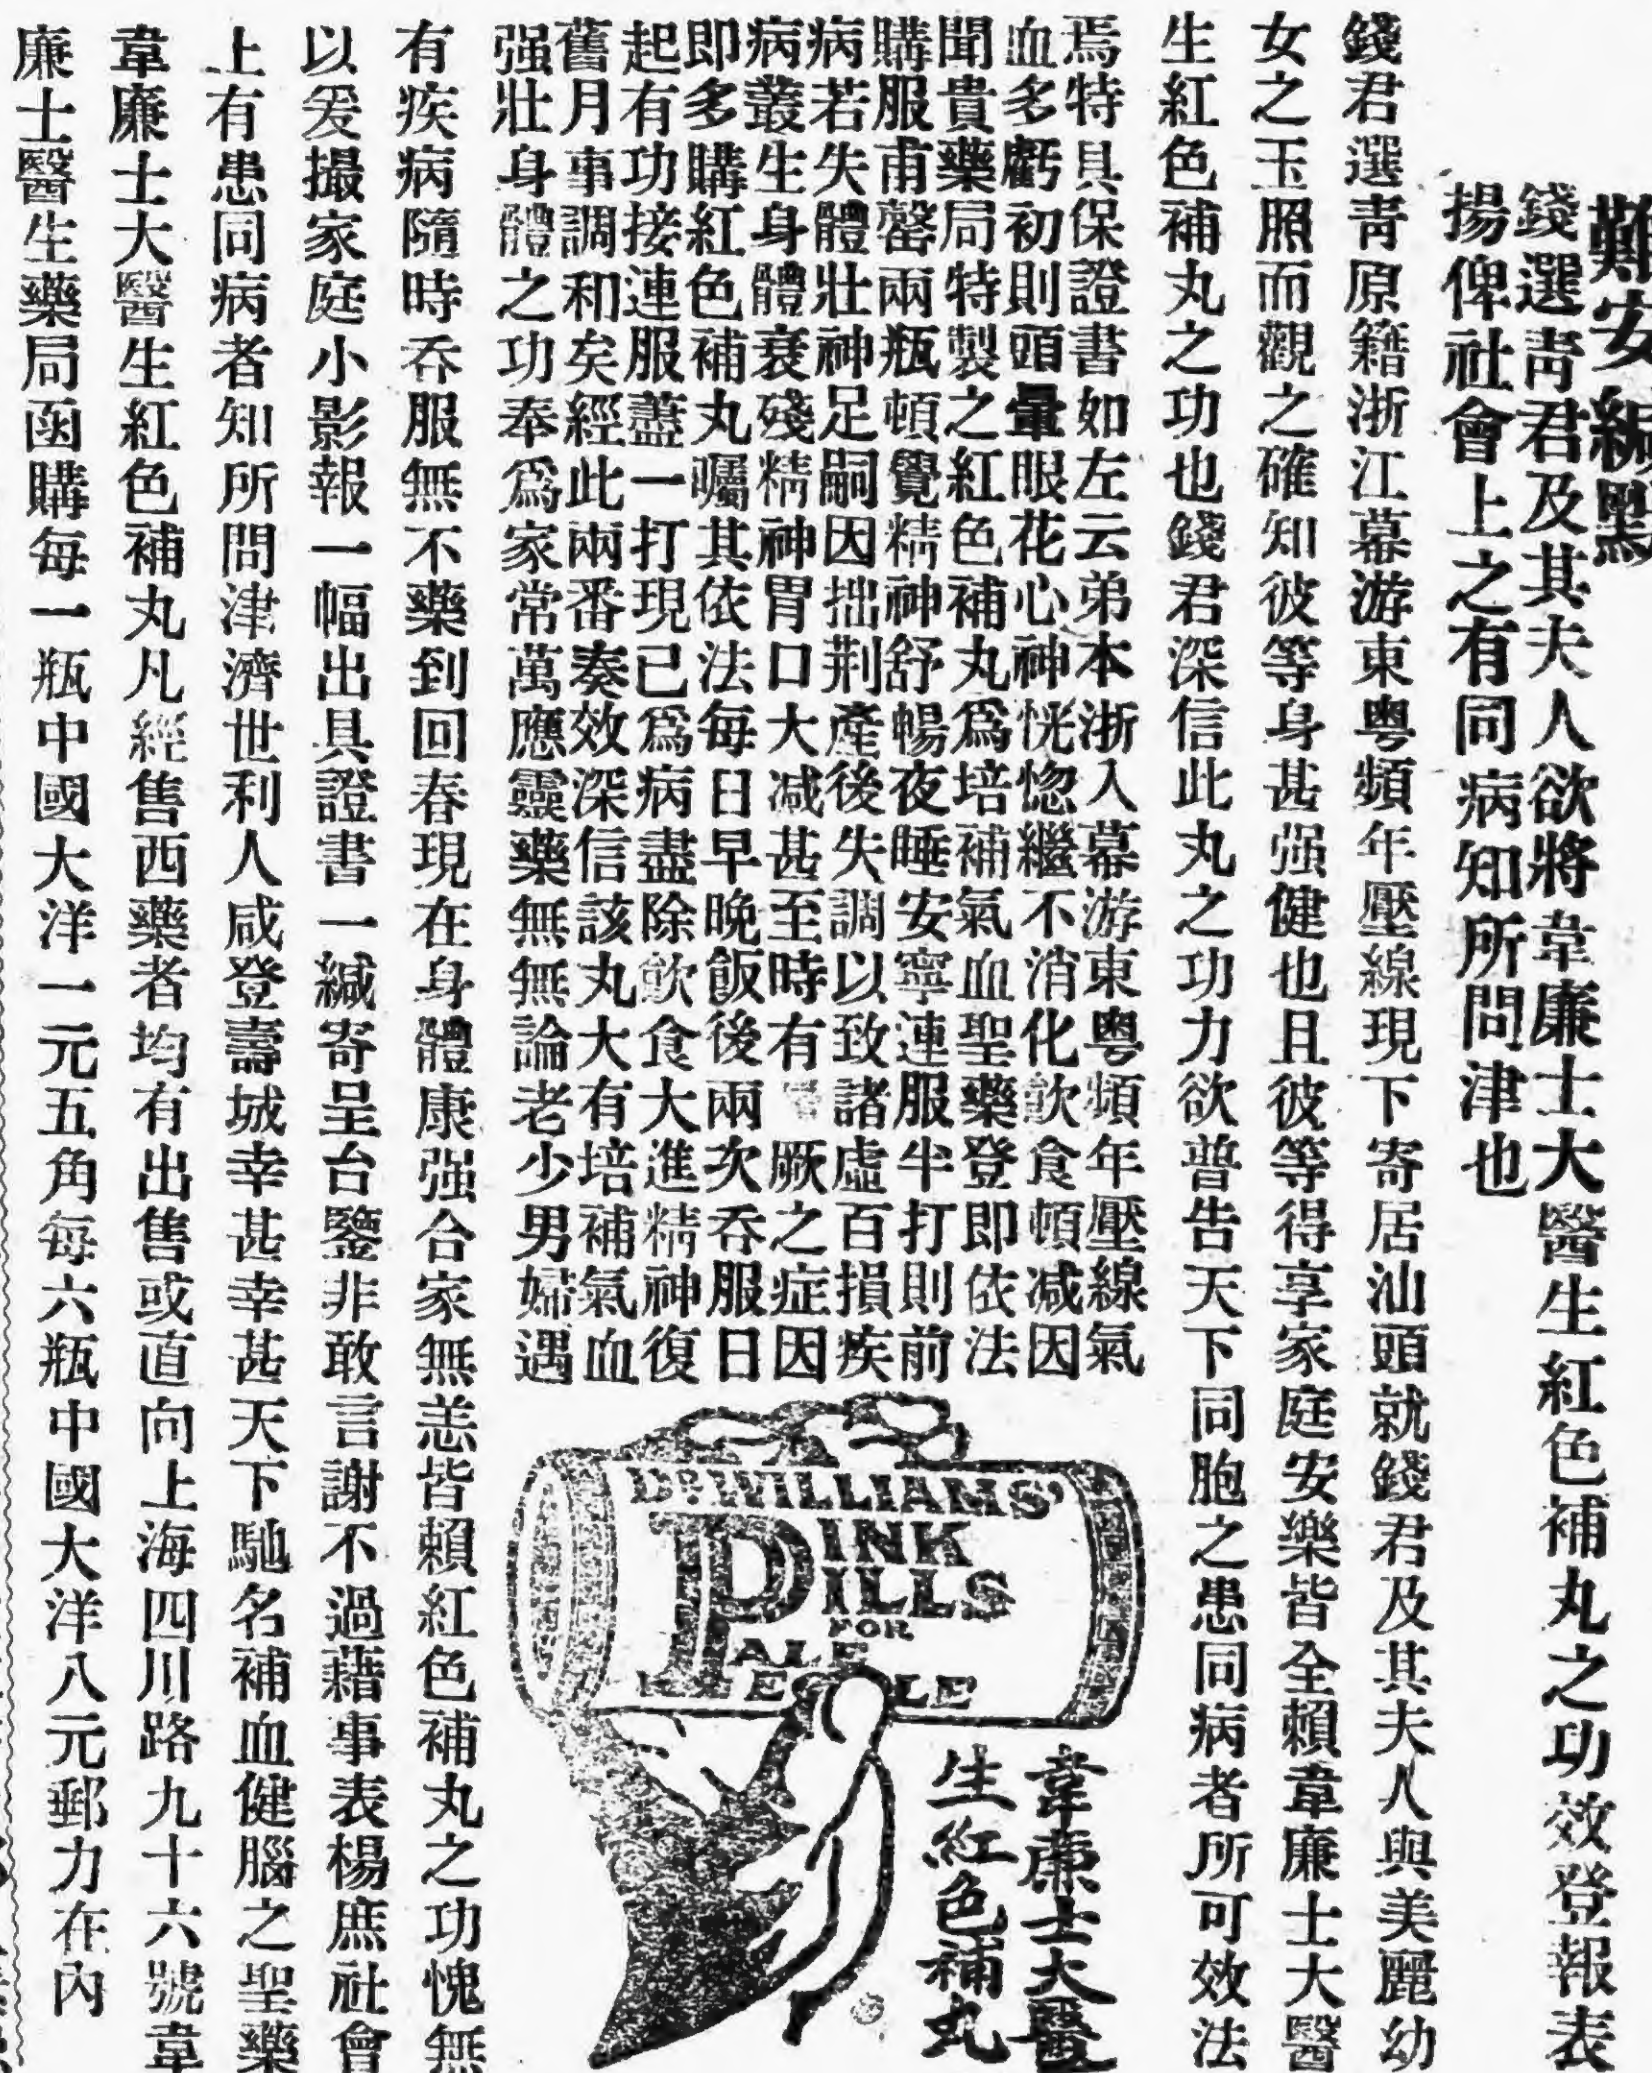 難安緘默
錢選靑君及其夫人欲將韋廉士大醫生紅色補丸之功效登報表
揚俾社會上之有同病知所問津也
錢君選靑原籍浙江幕游東粵頻年壓線現下寄居汕頭就錢君及其夫人與美麗幼
女之玉照而觀之確知彼等身甚强健也且彼等得享家庭安樂皆全賴韋廉士大醫
生紅色補丸之功也錢君深信此丸之功力欲普告天下同胞之患同病者所可效法
焉特具保證書如左云弟本浙入幕游東粵頻年壓線氣
血多虧初則頭暈眼花心神恍惚繼不消化飮食頓減因
聞貴藥局特製之紅色補丸爲培補氣血聖藥登即依法
購服甫罄兩瓶頓覺精神舒暢夜睡安寧連服半打則前
病若失體壯神足嗣因拙荆產後失調以致諸虛百損疾
病叢生身體衰殘精神胃口大减甚至時有 厥之症因
即多購紅色補丸囑其依法每日早晚飯後兩次吞服日
起有功接連服藎一打現已爲病盡除飮食大進精神復
舊月事調和矣經此兩番奏效深信該丸大有培補氣血
强壯身體之功奉爲家常萬應靈藥無無論老少男婦遇
有疾病隨時吞服無不藥到回春現在身體康强合家無恙皆賴紅色補丸之功愧無
以爰撮家庭小影報一幅出具證書一緘寄呈台鑒非敢言謝不過藉事表楊庶社會
上有患同病者知所問津濟世利人咸登壽城幸甚幸甚天下馳名補血健腦之聖藥
韋廉士大醫生紅色補丸凡經售西藥者均有出售或直向上海四川路九十六號韋
廉士醫生藥局函購每一瓶中國大洋一元五角每六瓶中國大洋八元郵力在內
DR WILLIAMS'
PINK
PILLS
FOR
PALE
PEOPLE
韋廉士大醫
生紅色補丸